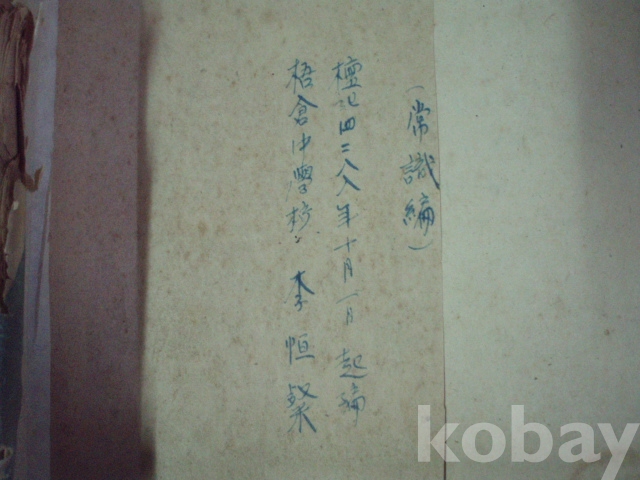 (常識編)
檀紀四二八八年十月一日 起編
梧倉中學校 李恒粲
kobay